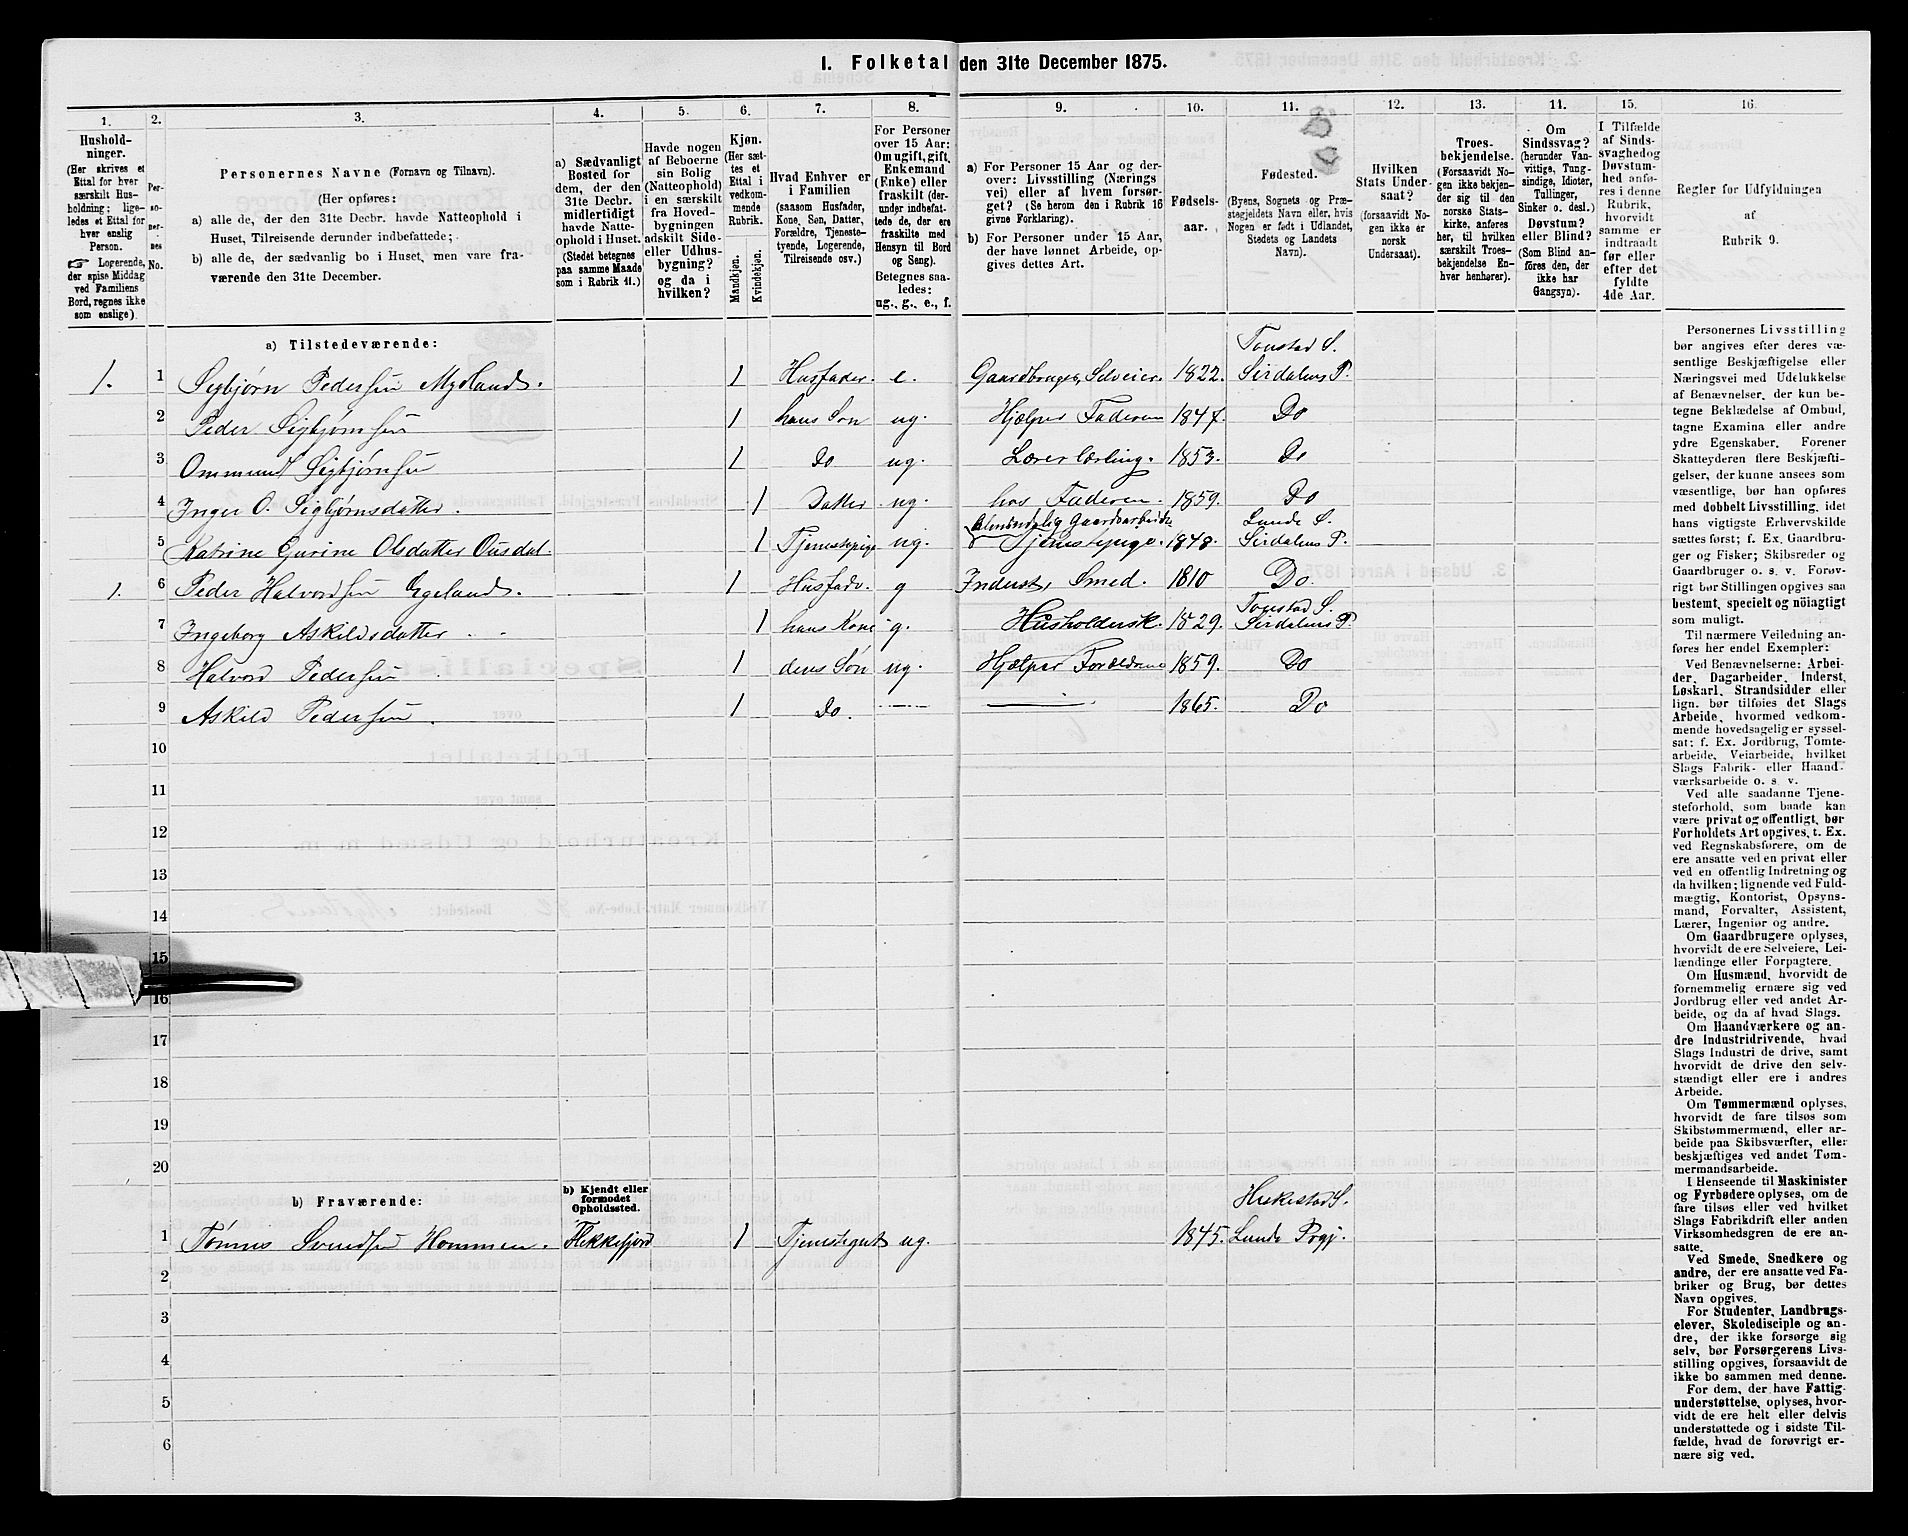 1. Folketal den 31te December 1875.
1.
Hushold-
ninger.
(Her skrives et
Ettal for hver
særskilt Hus-
holdning; lige-
ledes et Ettal for
hver enslig
Person.
☞ Logerende,
der spise Middag
ved Familiens
Bord, regnes ikke
som enslige).
2.
Per-
so-
ner-
nes
No.
3.
Personernes Navne (Fornavn og Tilnavn).
(Her opføres:
a) alle de, der den 31te Decbr. havde Natteophold i
Huset, Tilreisende derunder indbefattede;
b) alle de, der sædvanlig bo i Huset, men vare fra-
værende den 31te December.
4.
a) Sædvanligt
Bosted for
dem, der den
31te Decbr.
midlertidigt
havde Natte-
ophold i Huset.
(Stedet betegnes
paa samme Maade
som i Rubrik 11.)
5.
Havde nogen
af Beboerne
sin Bolig
(Natteophold)
i en særskilt
fra Hoved-
bygningen
adskilt Side-
eller Udhus-
bygning?
og da i
hvilken?
6.
Kjøn.
(Her sæt-
tes et
Ettal i
vedkom-
mende
Rubrik.
Mandkjøn.
Kvindekjøn.
7.
Hvad Enhver er
i Familien
(saasom Husfader,
Kone, Søn, Datter,
Forældre, Tjeneste-
tyende, Logerende,
Tilreisende osv.)
8.
For Personer
over 15 Aar:
Om ugift, gift,
Enkemand
(Enke) eller
fraskilt (der-
under indbefat-
tede de, der ere
fraskilte med
Hensyn til Bord
og Seng).
Betegnes saa-
ledes:
ug., g., e., f.
9.
a) For Personer 15 Aar og der-
over: Livsstilling (Nærings
vei) eller af hvem forsør-
get? (Se herom den i Rubrik 16
givne Forklaring).
b) For Personer under 15 Aar,
der have lønnet Arbeide, op-
gives dettes Art.
10.
Fødsels-
aar.
11.
Fødested.
(Byens, Sognets og Præ-
stegjeldets Navn eller, hvis
Nogen er født i Udlandet,
Stedets og Landets
Navn).
12.
Hvilken
Stats Under-
saat?
(forsaavidt No-
gen ikke er
norsk
Undersaat).
13.
Troes-
bekjendelse.
(Forsaavidt No-
gen ikke bekjen-
der sig til den
norske Stats-
kirke, anføres
her, til hvilken
særskilt Troes-
bekjendelse En-
hver henhører).
11.
Om
Sindssvag?
(herunder Van-
vittige, Tung-
sindige, Idioter,
Tullinger,
Sinker o. desl.)
Døvstum?
eller Blind?
(Som Blind an-
føres den, der
ikke har
Gangsyn).
15.
I Tilfælde
af Sinds-
svaghed og
Døvstum-
hed anfø-
res i denne
Rubrik,
hvorvidt
samme er
indtraadt
før eller
efter det
fyldte
4de Aar.
16.
Regler for Udfyldningen
af
Rubrik 9.
a) Tilstedeværende:
Tonstad S.
1. 1 Sigbjørn Pedersen Mysland. 1 Husfader. e. Gaardbruger, Selveier. 1822. Sirdalens P.
2 Peder Sigbjørnsen 1 hans Søn ug. Hjælper Faderen 1847. Do
3 Ommund Sigbjørnsen 1 Do ug. Lærerlærling. 1853. Do
4 Inger O. Sigbjørnsdatter. 1 Datter ug. hos Faderen. 1859. Do
Almindelig Gaardsarbeide Lunde S.
5 Katrine Gurine Olsdatter Ousdal. 1 Tjenestepige ug. Tjenestepige. 1848. Sirdalens P.
1. 6 Peder Halvordsen Egeland. 1 Husfader. g Inderst, Smed. 1810 Do
Tonstad S.
7 Ingeborg Askildsdatter 1 hans Kone g. Husholdersk. 1829. Sirdalens P.
8 Halvord Pedersen 1 deres Søn ug. Hjælper Forældrene 1859. Do
9 Askild Pedersen. 1 Do. 1865. Do
10
11
12
13
14
15
16
17
18
19
20
b) Fraværende:
b) Kjendt eller
formodet
Opholdssted.
Heskestad S.
1 Tønnes Svendsen Hommen. Flekkefjord 1 Tjenestegut ug. 1845. Lunde Prgj.
2
3
4
5
6
Personernes Livsstilling
bør angives efter deres væ-
sentlige Beskjæftigelse eller
Næringsvei med Udelukkelse
af Benævnelser, der kun be-
tegne Beklædelse af Ombud,
tagne Examina eller andre
ydre Egenskaber. Forener
Skatteyderen flere Beskjæfti-
gelser, der kunne ansees som
væsentlige, bør han opføres
med dobbelt Livsstilling, idet
hans vigtigste Erhvervskilde
sættes først; f. Ex. Gaardbru-
ger og Fisker; Skibsreder og
Gaardbruger o. s. v. Forøv-
rigt bør Stillingen opgives saa
bestemt, specielt og nöiagtigt
som muligt.
Til nærmere Veiledning an-
føres her endel Exempler:
Ved Benævnelserne: Arbei-
der, Dagarbeider, Inderst,
Løskarl, Strandsidder eller
lign. bør tilføies det Slags
Arbeide, hvormed vedkom-
mende hovedsagelig er syssel-
sat; f. Ex. Jordbrug, Tomte-
arbeide, Veiarbeide, hvilket
Slags Fabrik- eller Haand-
værksarbeide o. s. v.
Ved alle saadanne Tjene-
steforhold, som baade kan
være privat og offentligt, bør
Forholdets Art opgives, t. Ex.
ved Regnskabsførere, om de
ere ansatte ved en privat eller
ved en offentlig Indretning og
da hvilken; lignende ved Fuld-
mægtig, Kontorist, Opsyns-
mand, Forvalter, Assistent,
Lærer, Ingeniør og andre.
Om Gaardbrugere oplyses,
hvorvidt de ere Selveiere, Lei-
lændinge eller Forpagtere.
Om Husmænd, hvorvidt de
fornemmelig ernære sig ved
Jordbrug eller ved andet Ar-
beide, og da af hvad Slags.
Om Haandværkere og an-
dre Industridrivende, hvad
Slags Industri de drive, samt
hvorvidt de drive den selv-
stændigt eller ere i andres
Arbeide.
Om Tømmermænd oplyses,
hvorvidt de fare tilsøs som
Skibstømmermænd, eller ar-
beide paa Skibsværfter, eller
beskjæftiges ved andet Tøm-
mermandsarbeide.
I Henseende til Maskinister
og Fyrbødere oplyses, om de
fare tilsøs eller ved hvilket
Slags Fabrikdrift eller anden
Virksomhedsgren de ere an-
satte.
Ved Smede, Snedkere og
andre, der ere ansatte ved Fa-
briker og Brug, bør dettes
Navn opgives.
For Studenter, Landbrugs-
elever, Skoledisciple og an-
dre, der ikke forsørge sig
selv, bør Forsørgerens Livs-
stilling opgives, forsaavidt de
ikke bo sammen med denne.
For dem, der have Fattig-
understøttelse, oplyses, hvor-
vidt de ere helt eller delvis
understøttede og i sidste Til-
fælde, hvad de forøvrigt er-
nære sig ved.